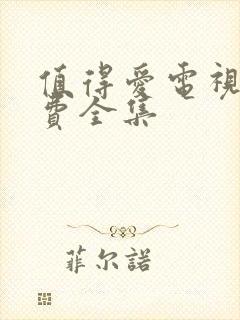 值得愛電視
費全集
菲尔諾